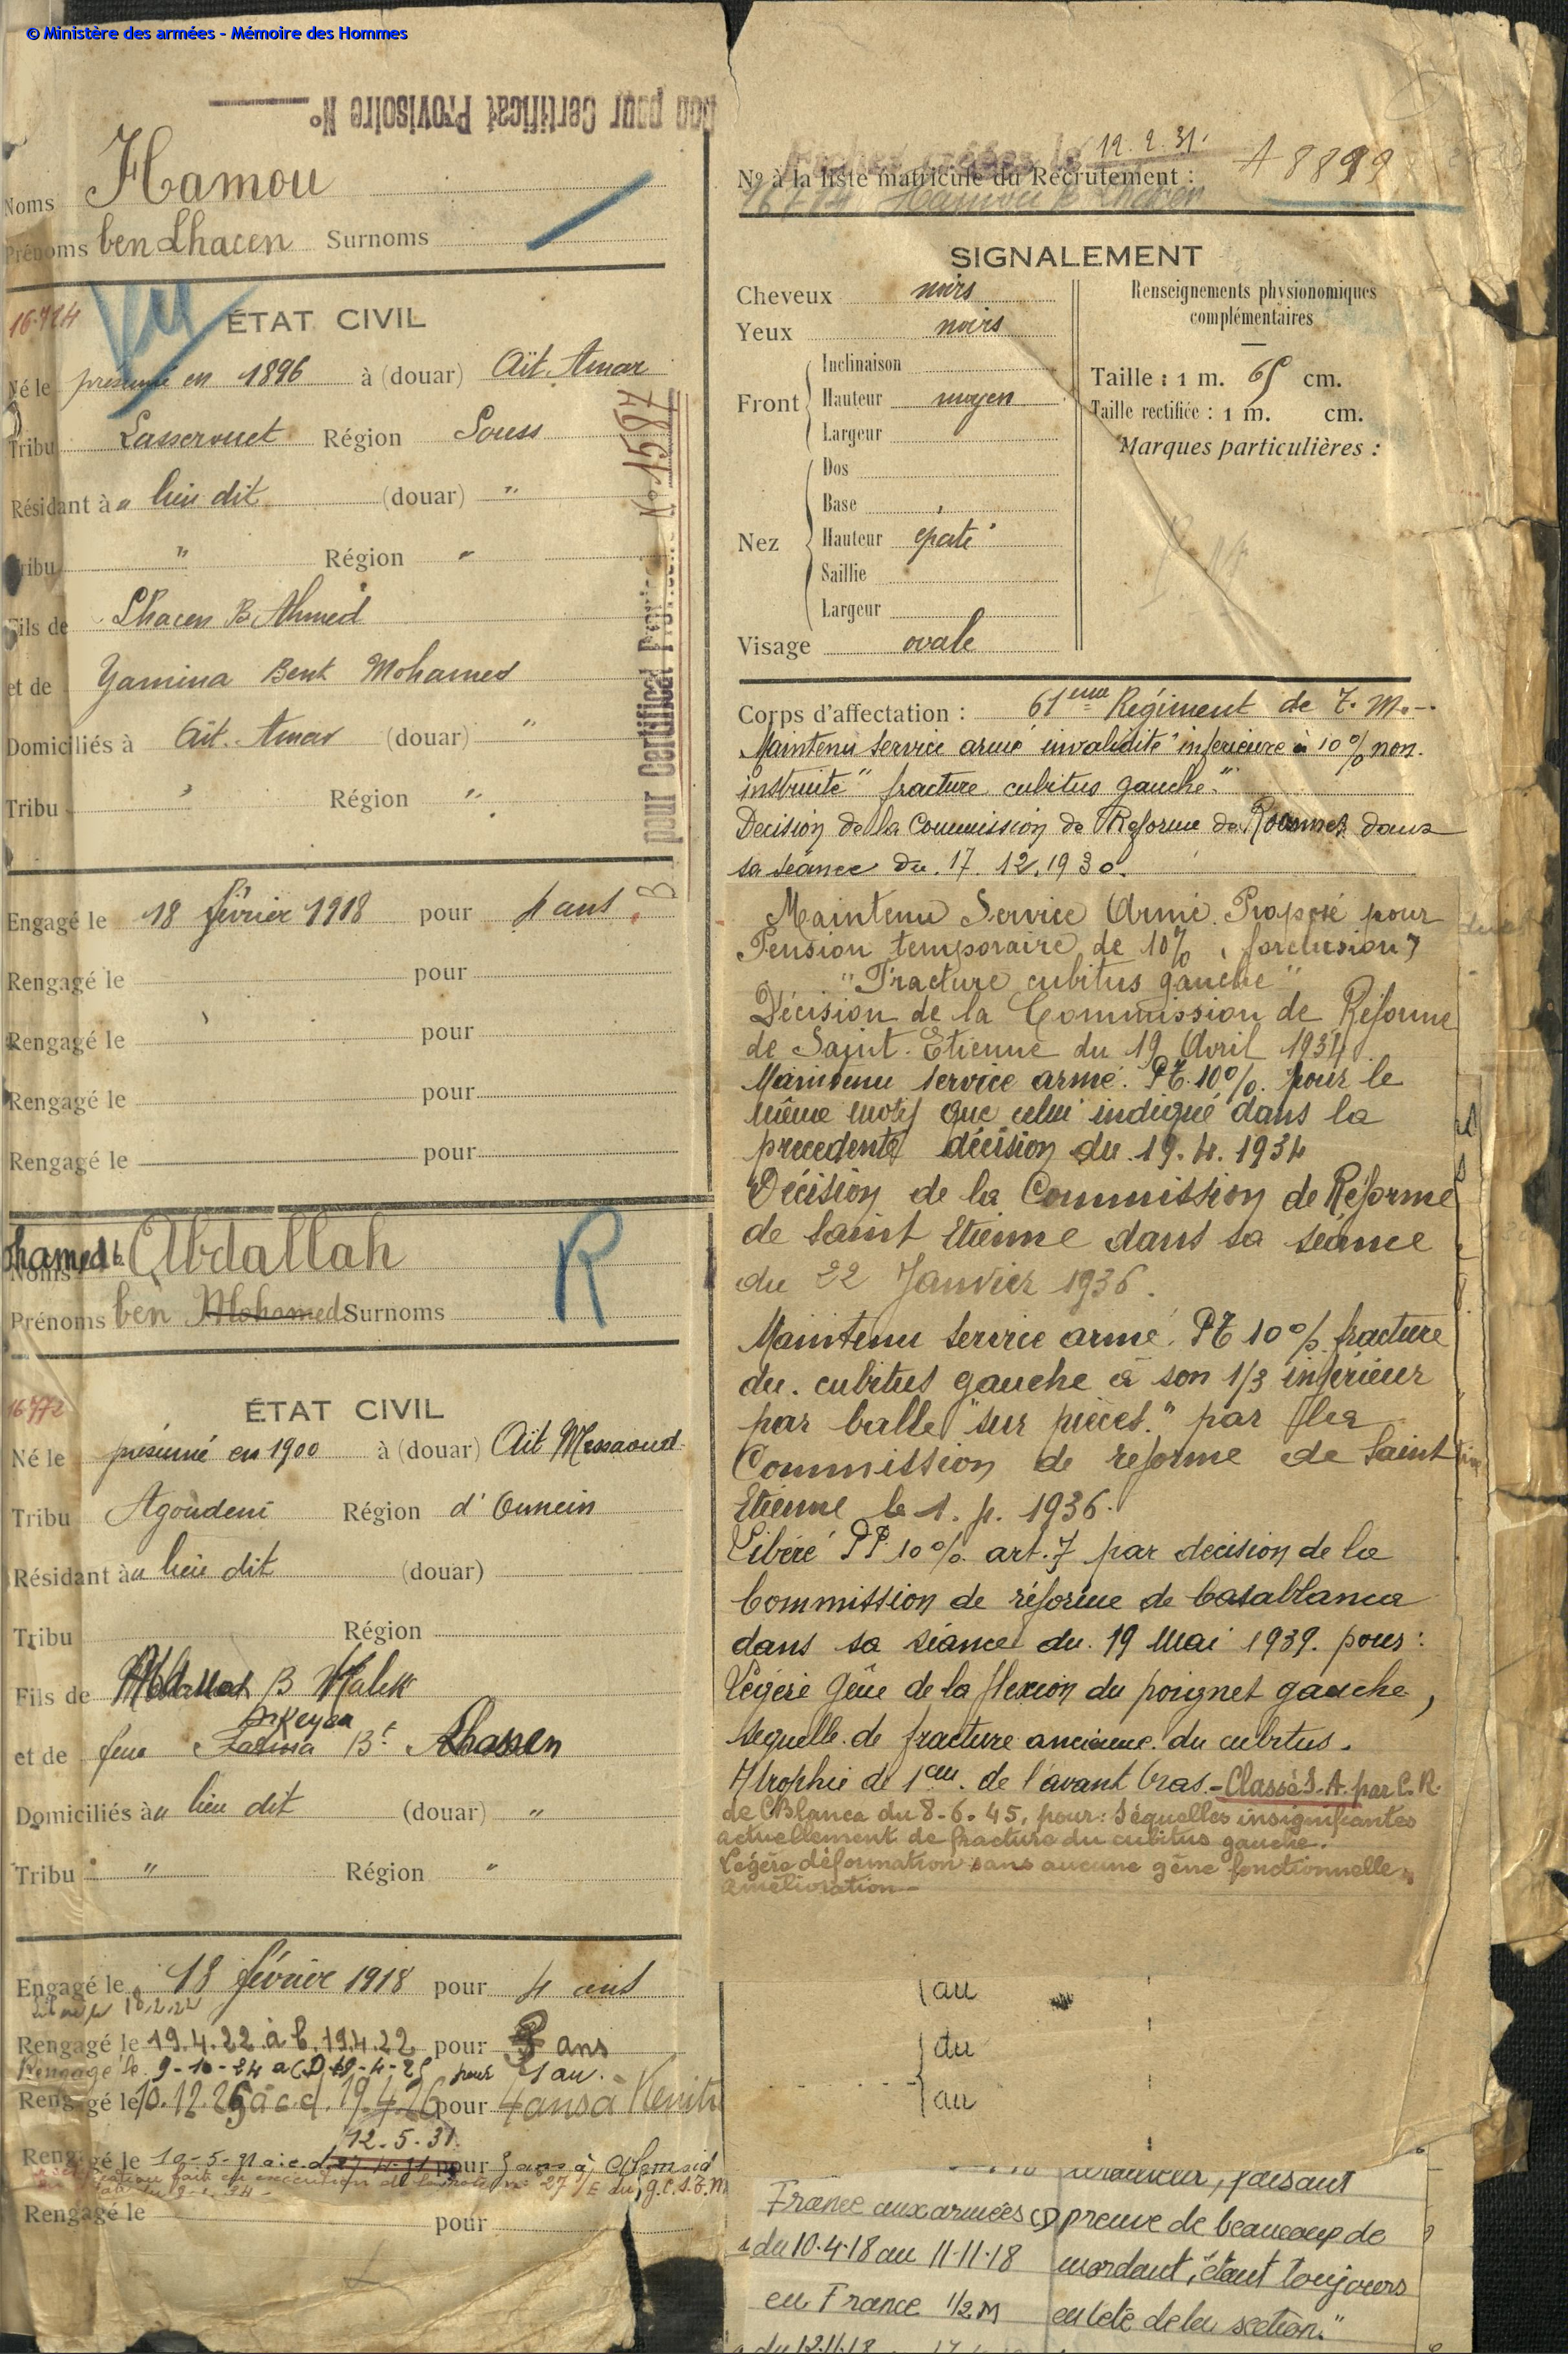 © Ministère des armées - Mémoire des Hommes
Bon pour Certificat Provisoire N°
Noms Hamou
Prénoms ben Lhacen Surnoms
16.724
Vu
ÉTAT CIVIL
Né le présumé en 1896 à (douar) Aït Amar
Tribu Lasserouet Région Souss
Résidant à " lieu dit (douar) "
Tribu " Région "
Fils de Lhacen B. Ahmed
et de Yamina Bent Mohamed
Domiciliés à Ait. Amar (douar) "
Tribu " Région "
B pour Certificat Provisoire N° 1587
Engagé le 18 février 1918 pour 4 ans
Rengagé le pour
Rengagé le pour
Rengagé le pour
Rengagé le pour
Noms Mohamed b. Abdallah
R
Prénoms ben Mohamed Surnoms
16772
ÉTAT CIVIL
Né le présumé en 1900 à (douar) Ait Messaoud
Tribu Agoudeni Région d' Ounein
Résidant à u lieu dit (douar)
Tribu Région
Fils de B Malek
et de feue Fatima Bt Lhassen
Domiciliés à u lieu dit (douar) "
Tribu " Région "
Engagé le 18 février 1918 pour 4 ans
18.2.22
Rengagé le 19.4.22 à c. 19.4.22 pour 3 ans
Rengagé le 9-10-24 a C D 19-4-25 pour 1 an.
Rengagé le 10.12.25 à c.d. 19.4.26 pour 4 ans à Kenitra
12.5.31.
Rengagé le 10-5-31 à c.d. pour 3 ans à
Rengagé le pour
Fiches créées le 12.2.31.
N° à la liste matricule du Recrutement : A 8899
16724 Hamou b Lhacen
SIGNALEMENT
Cheveux noirs
Yeux noirs
Front
Inclinaison
Hauteur moyen
Largeur
Nez
Dos
Base
Hauteur épaté
Saillie
Largeur
Visage ovale
Renseignements physionomiques
complémentaires
Taille : 1 m. 65 cm.
Taille rectifiée : 1 m. cm.
Marques particulières :
Corps d'affectation : 61ème Régiment de T. M.-
Maintenu service armé invalidité inférieure à 10% non.
instruite "fracture cubitus gauche."
Decision de la Commission de Réforme de dans
sa séance du. 17. 12. 1930.
Maintenu Service Armé. Proposé pour
Pension temporaire de 10% (forclusion)
"Fracture cubitus gauche"
Décision de la Commission de Réforme
de Saint-Etienne du 19 Avril 1934
Maintenu service armé. PT. 10%. pour le
même motif que celui indiqué dans la
precedente décision du. 19. 4. 1934
Décision de la Commission de Réforme
de Saint Etienne dans sa séance
du 22 Janvier 1936.
Maintenu service armé. PT 10% fracture
du. cubitus gauche à son 1/3 inférieur
par balle "sur pièces." par la
Commission de reforme de Saint
Etienne le 1. 4. 1936.
Libéré PP 10%. art. 7 par decision de la
Commission de réforme de Casablanca
dans sa séance du. 19 Mai 1939. pour :
Légère gêne de la flexion du poignet gauche,
sequelle de fracture ancienne. du cubitus.
Atrophie de 1cm. de l'avant bras. - Classé S.A. par C.R.
de CBlanca du 8-6-45, pour : Séquelles insignifiantes
actuellement de fracture du cubitus gauche.
Légère déformation sans aucune gêne fonctionnelle,
amélioration -
au
du
au
faisant
France aux armées (1) preuve de beaucoup de
du 10.4.18 au 11.11.18 mordant, étant toujours
en France 1/2 M en tête de la section."
du 12.11.18